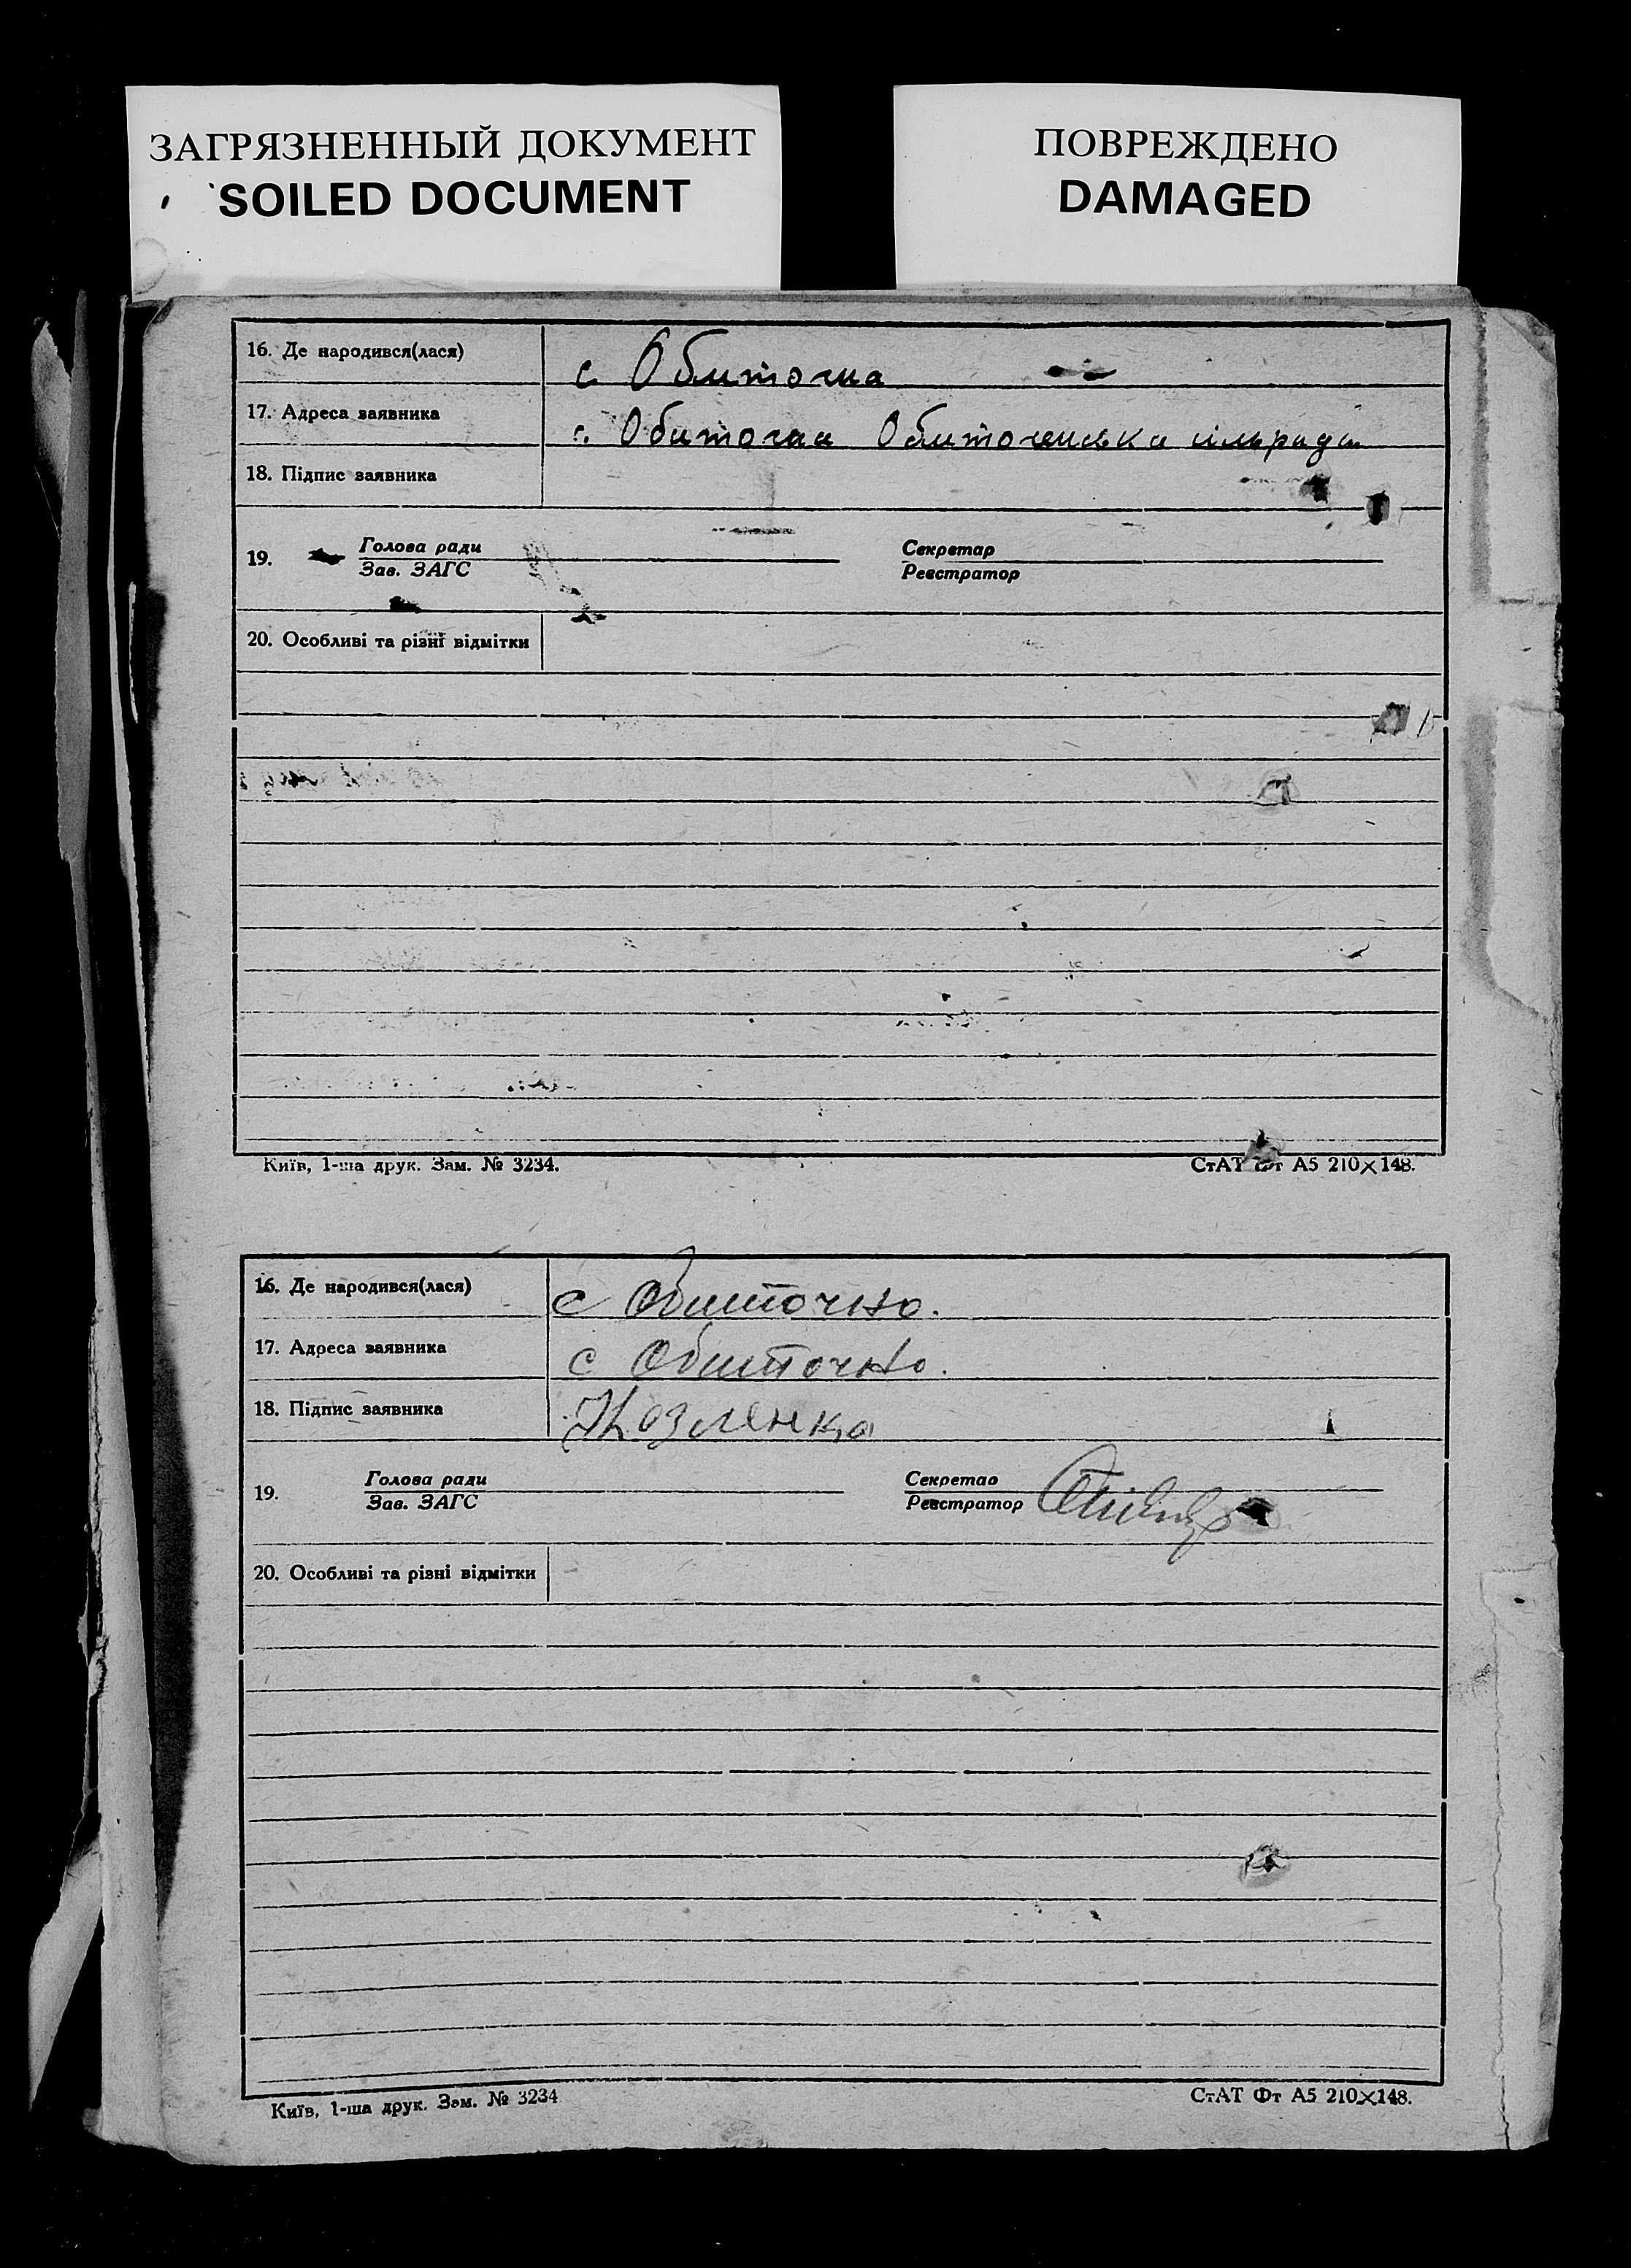 ЗАГРЯЗНЕННЫЙ ДОКУМЕНТ
SOILED DOCUMENT
ПОВРЕЖДЕНО
DAMAGED
16. Де народився(лася) с. Обиточна
17. Адреса заявника с. Обиточна Обиточенська сільрада
18. Підпис заявника
19. Голова ради Секретар
Зав. ЗАГС Реєстратор
20. Особливі та різні відмітки
Київ, 1-ша друк. Зам. № 3234. СтАТ Фт А5 210×148.
16. Де народився(лася) с Обиточно.
17. Адреса заявника с Обиточно.
18. Підпис заявника Козленко
19. Голова ради Секретар
Зав. ЗАГС Реєстратор
20. Особливі та різні відмітки
Київ, 1-ша друк. Зам. № 3234 СтАТ Фт А5 210×148.